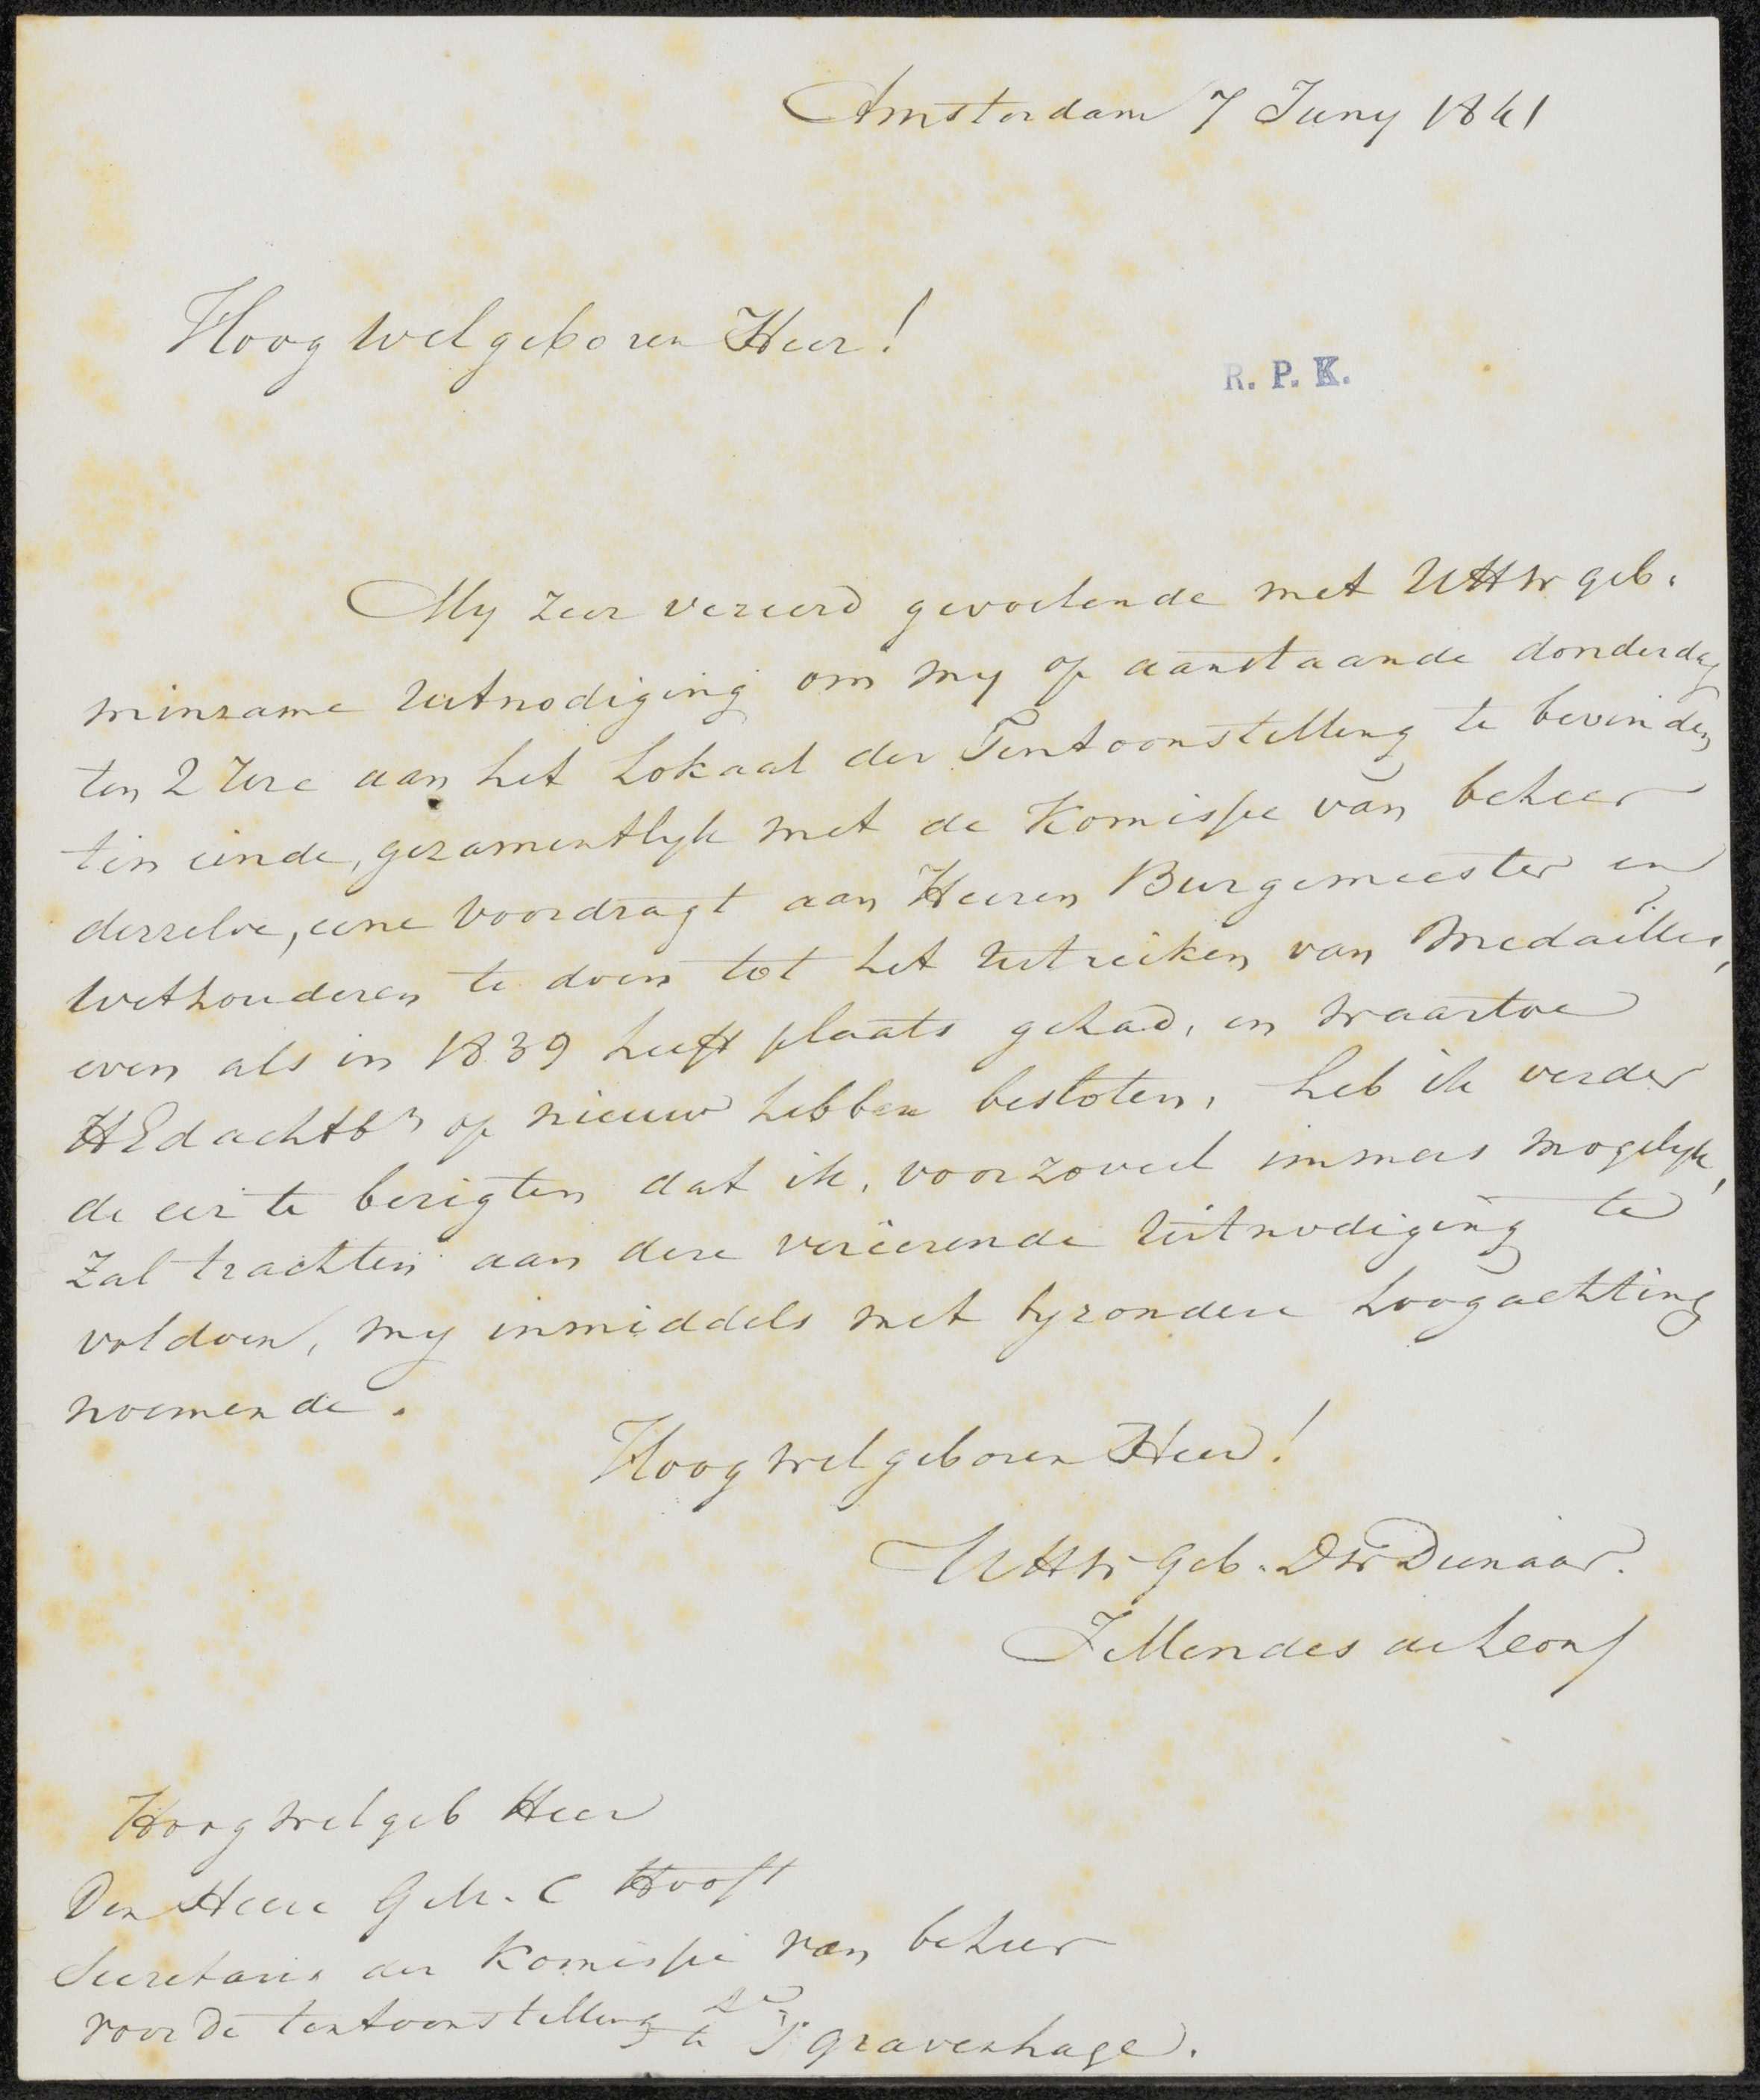 Amsterdam 7 Juny 1841
Hoog Welgeboren Heer!
R. P. K.
My zeer vereerd gevoelende met UHWgeb.
minzame Uitnodiging om my op aanstaande donderdag
ten 2 Ure aan het Lokaal der Tentoonstelling te bevinden
ten einde, gezamentlyk met de Komissie van beheer
derzelve, eene Voordragt aan Heeren Burgemeester en
Wethouderen te doen tot het Uitreiken van Medailles,
even als in 1839 heeft plaats gehad, en waartoe
HEdachtbn op nieuw hebben besloten, heb ik verder
de eer te berigten dat ik, voor zoveel immers mogelyk,
Zal trachten aan deze vereerende Uitnodiging te
voldoen, my inmiddels met byzondere hoogachting
noemende.
Hoog welgeboren Heer!
UHWGeb. DW Dienaar.
J Mendes de Leon
Hoog welgeb Heer
Den Heere C Hooft
Secretaris der Komissie van beheer
voor de tentoonstelling te S'gravenhage.